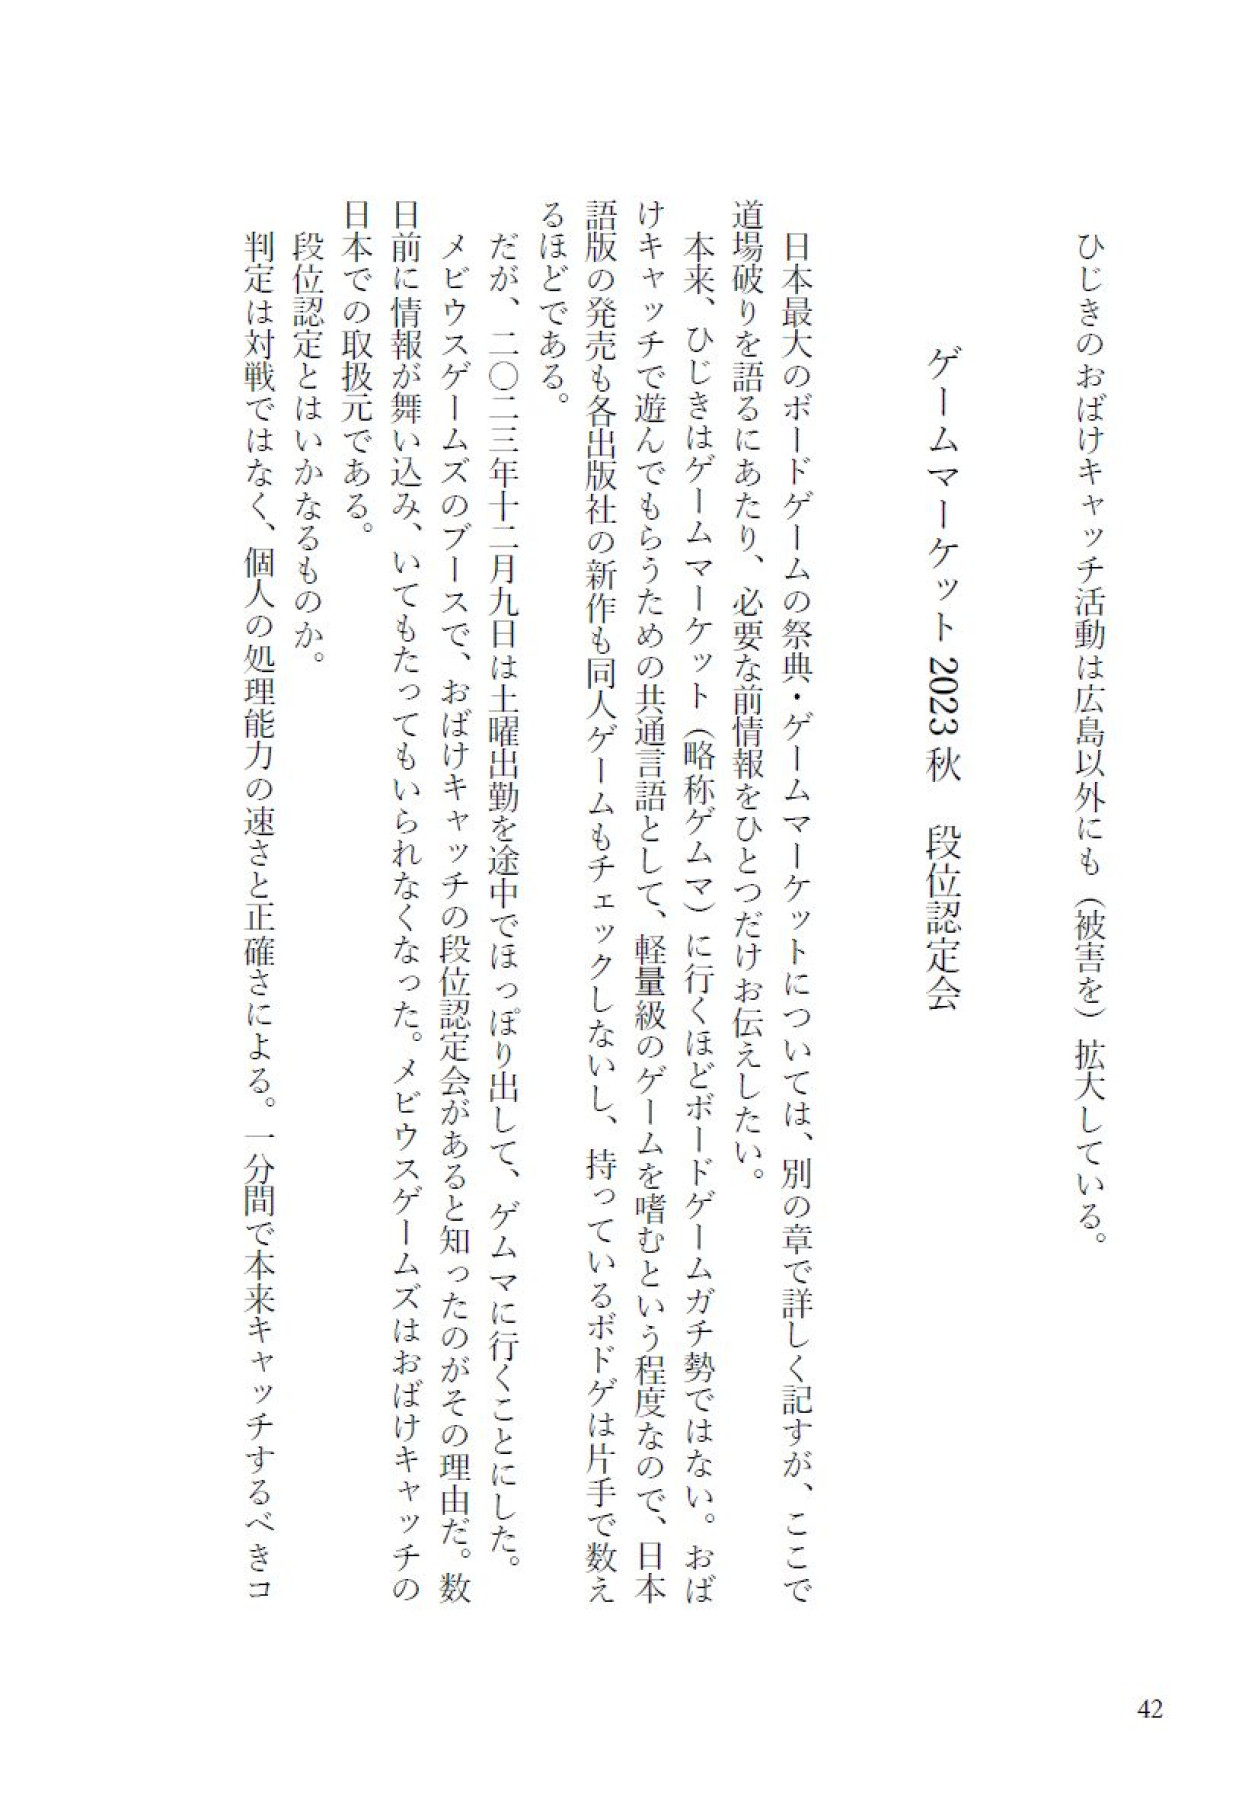 ひじきのおばけキャッチ活動は広島以外にも（被害を）拡大している。
ゲームマーケット2023秋　段位認定会
日本最大のボードゲームの祭典・ゲームマーケットについては、別の章で詳しく記すが、ここで
道場破りを語るにあたり、必要な前情報をひとつだけお伝えしたい。
本来、ひじきはゲームマーケット（略称ゲムマ）に行くほどボードゲームガチ勢ではない。おば
けキャッチで遊んでもらうための共通言語として、軽量級のゲームを嗜むという程度なので、日本
語版の発売も各出版社の新作も同人ゲームもチェックしないし、持っているボドゲは片手で数え
るほどである。
だが、二〇二三年十二月九日は土曜出勤を途中でほっぽり出して、ゲムマに行くことにした。
メビウスゲームズのブースで、おばけキャッチの段位認定会があると知ったのがその理由だ。数
日前に情報が舞い込み、いてもたってもいられなくなった。メビウスゲームズはおばけキャッチの
日本での取扱元である。
段位認定とはいかなるものか。
判定は対戦ではなく、個人の処理能力の速さと正確さによる。一分間で本来キャッチするべきコ
42